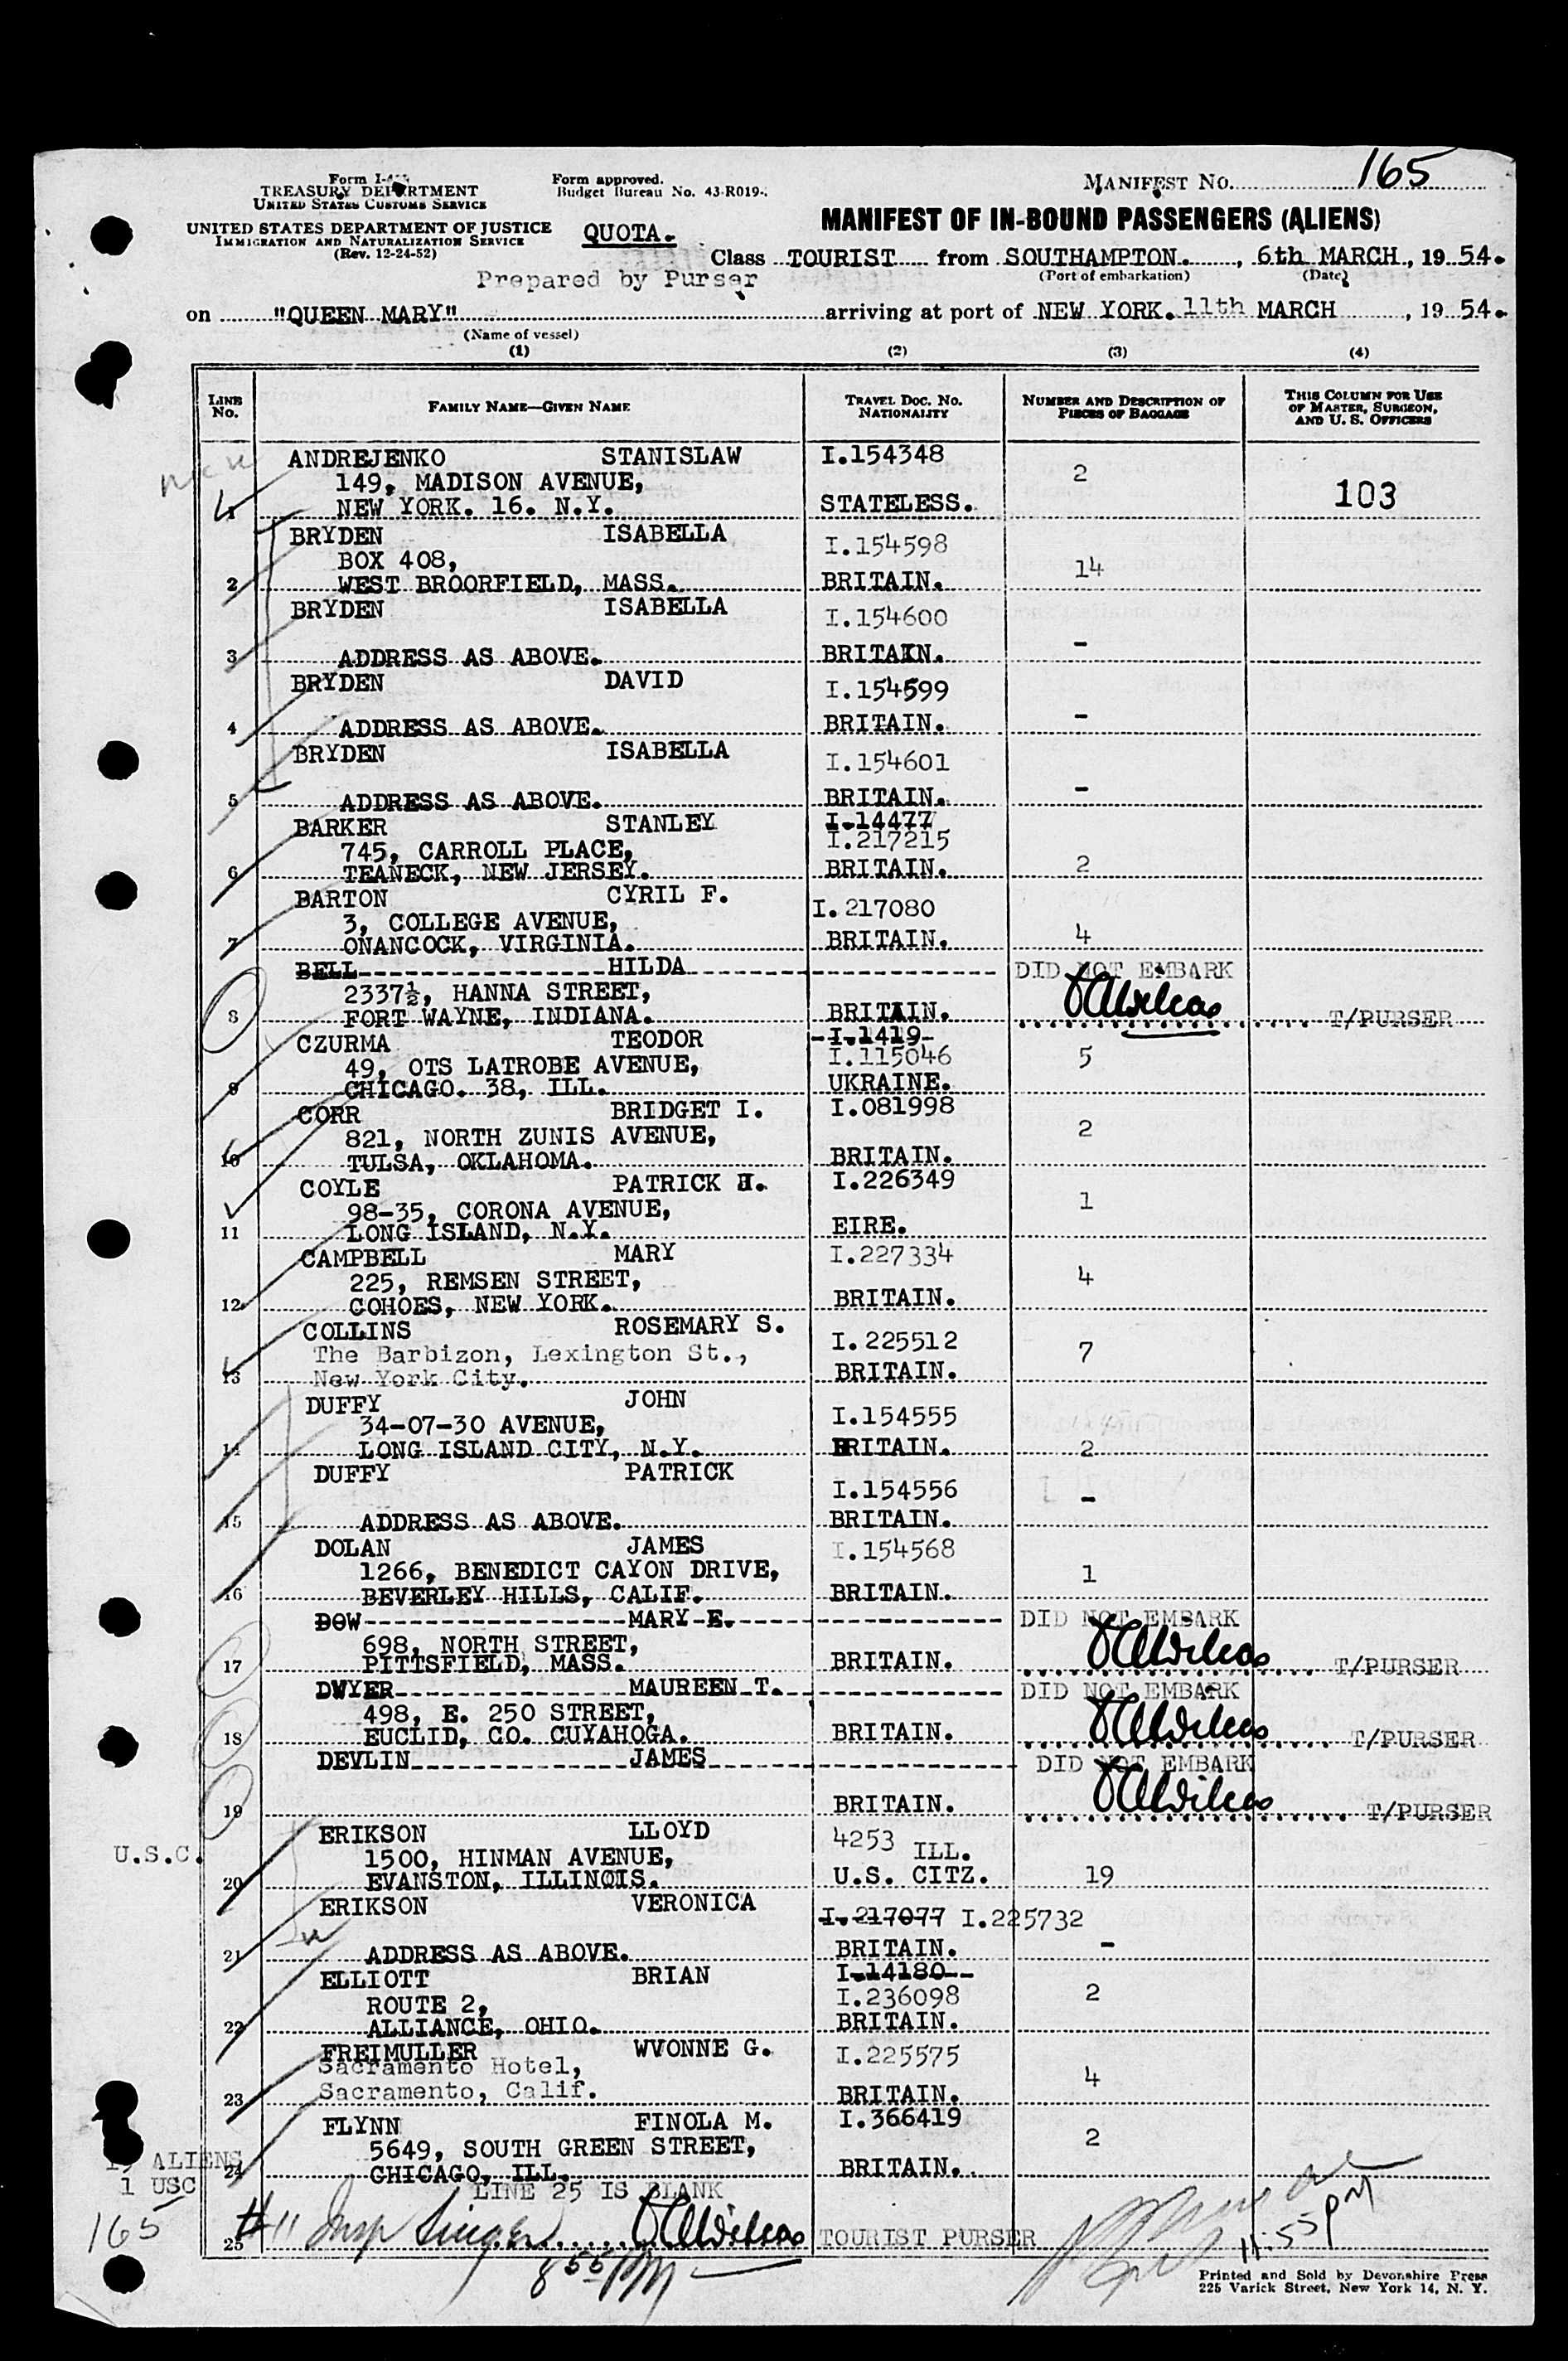 MANIFEST NO. 165
TREASURY DEPARTMENT
UNITED STATES CUSTOMS SERVICE
Form approved.
Budget Bureau No. 43-R019-.
UNITED STATES DEPARTMENT OF JUSTICE
IMMIGRATION AND NATURALIZATION SERVICE
(Rev. 12-24-52)
QUOTA.
MANIFEST OF IN-BOUND PASSENGERS (ALIENS)
Class TOURIST from SOUTHAMPTON., 6th MARCH, 1954.
(Port of embarkation) (Date)
Prepared by Purser
on "QUEEN MARY" arriving at port of NEW YORK. 11th MARCH, 1954.
(Name of vessel)
(1) (2) (3) (4)
LINE No. FAMILY NAME—GIVEN NAME TRAVEL DOC. NO. NATIONALITY NUMBER AND DESCRIPTION OF PIECES OF BAGGAGE THIS COLUMN FOR USE OF MASTER, SURGEON, AND U. S. OFFICERS
ANDREJENKO STANISLAW I.154348
149, MADISON AVENUE, 2
1 NEW YORK. 16. N.Y. STATELESS. 103
BRYDEN ISABELLA I.154598
BOX 408, 14
2 WEST BROORFIELD, MASS. BRITAIN.
BRYDEN ISABELLA I.154600
3 ADDRESS AS ABOVE. BRITAIN. -
BRYDEN DAVID I.154599
4 ADDRESS AS ABOVE. BRITAIN. -
BRYDEN ISABELLA I.154601
5 ADDRESS AS ABOVE. BRITAIN. -
BARKER STANLEY I-14477
745, CARROLL PLACE, I.217215
6 TEANECK, NEW JERSEY. BRITAIN. 2
BARTON CYRIL F. I.217080
3, COLLEGE AVENUE,
7 ONANCOCK, VIRGINIA. BRITAIN. 4
BELL HILDA DID NOT EMBARK
2337½, HANNA STREET,
8 FORT WAYNE, INDIANA. BRITAIN. T/PURSER
CZURMA TEODOR -I.1419-
49, OTS LATROBE AVENUE, I.115046 5
9 CHICAGO. 38, ILL. UKRAINE.
CORR BRIDGET I. I.081998
821, NORTH ZUNIS AVENUE, 2
10 TULSA, OKLAHOMA. BRITAIN.
COYLE PATRICK H. I.226349
98-35, CORONA AVENUE, 1
11 LONG ISLAND, N.Y. EIRE.
CAMPBELL MARY I.227334
225, REMSEN STREET, 4
12 COHOES, NEW YORK. BRITAIN.
COLLINS ROSEMARY S. I.225512
The Barbizon, Lexington St., 7
13 New York City. BRITAIN.
DUFFY JOHN I.154555
34-07-30 AVENUE,
14 LONG ISLAND CITY, N.Y. BRITAIN. 2
DUFFY PATRICK I.154556
15 ADDRESS AS ABOVE. BRITAIN. -
DOLAN JAMES I.154568
1266, BENEDICT CAYON DRIVE, 1
16 BEVERLEY HILLS, CALIF. BRITAIN.
DOW MARY E. DID NOT EMBARK
698, NORTH STREET,
17 PITTSFIELD, MASS. BRITAIN. T/PURSER
DWYER MAUREEN T. DID NOT EMBARK
498, E. 250 STREET,
18 EUCLID, CO. CUYAHOGA. BRITAIN. T/PURSER
DEVLIN JAMES DID NOT EMBARK
19 BRITAIN. T/PURSER
ERIKSON LLOYD 4253 ILL.
U.S.C. 1500, HINMAN AVENUE,
20 EVANSTON, ILLINOIS. U.S. CITZ. 19
ERIKSON VERONICA I.217077 I.225732
21 ADDRESS AS ABOVE. BRITAIN. -
ELLIOTT BRIAN I.14180--
ROUTE 2, I.236098 2
22 ALLIANCE, OHIO. BRITAIN.
FREIMULLER WVONNE G. I.225575
Sacramento Hotel, 4
23 Sacramento, Calif. BRITAIN.
FLYNN FINOLA M. I.366419
5649, SOUTH GREEN STREET, 2
24 CHICAGO, ILL. BRITAIN.
ALIENS
1 USC
165
LINE 25 IS BLANK
25 #11 Insp Singer TOURIST PURSER
8 55 PM
11:55 PM
Printed and Sold by Devonshire Press
225 Varick Street, New York 14, N. Y.